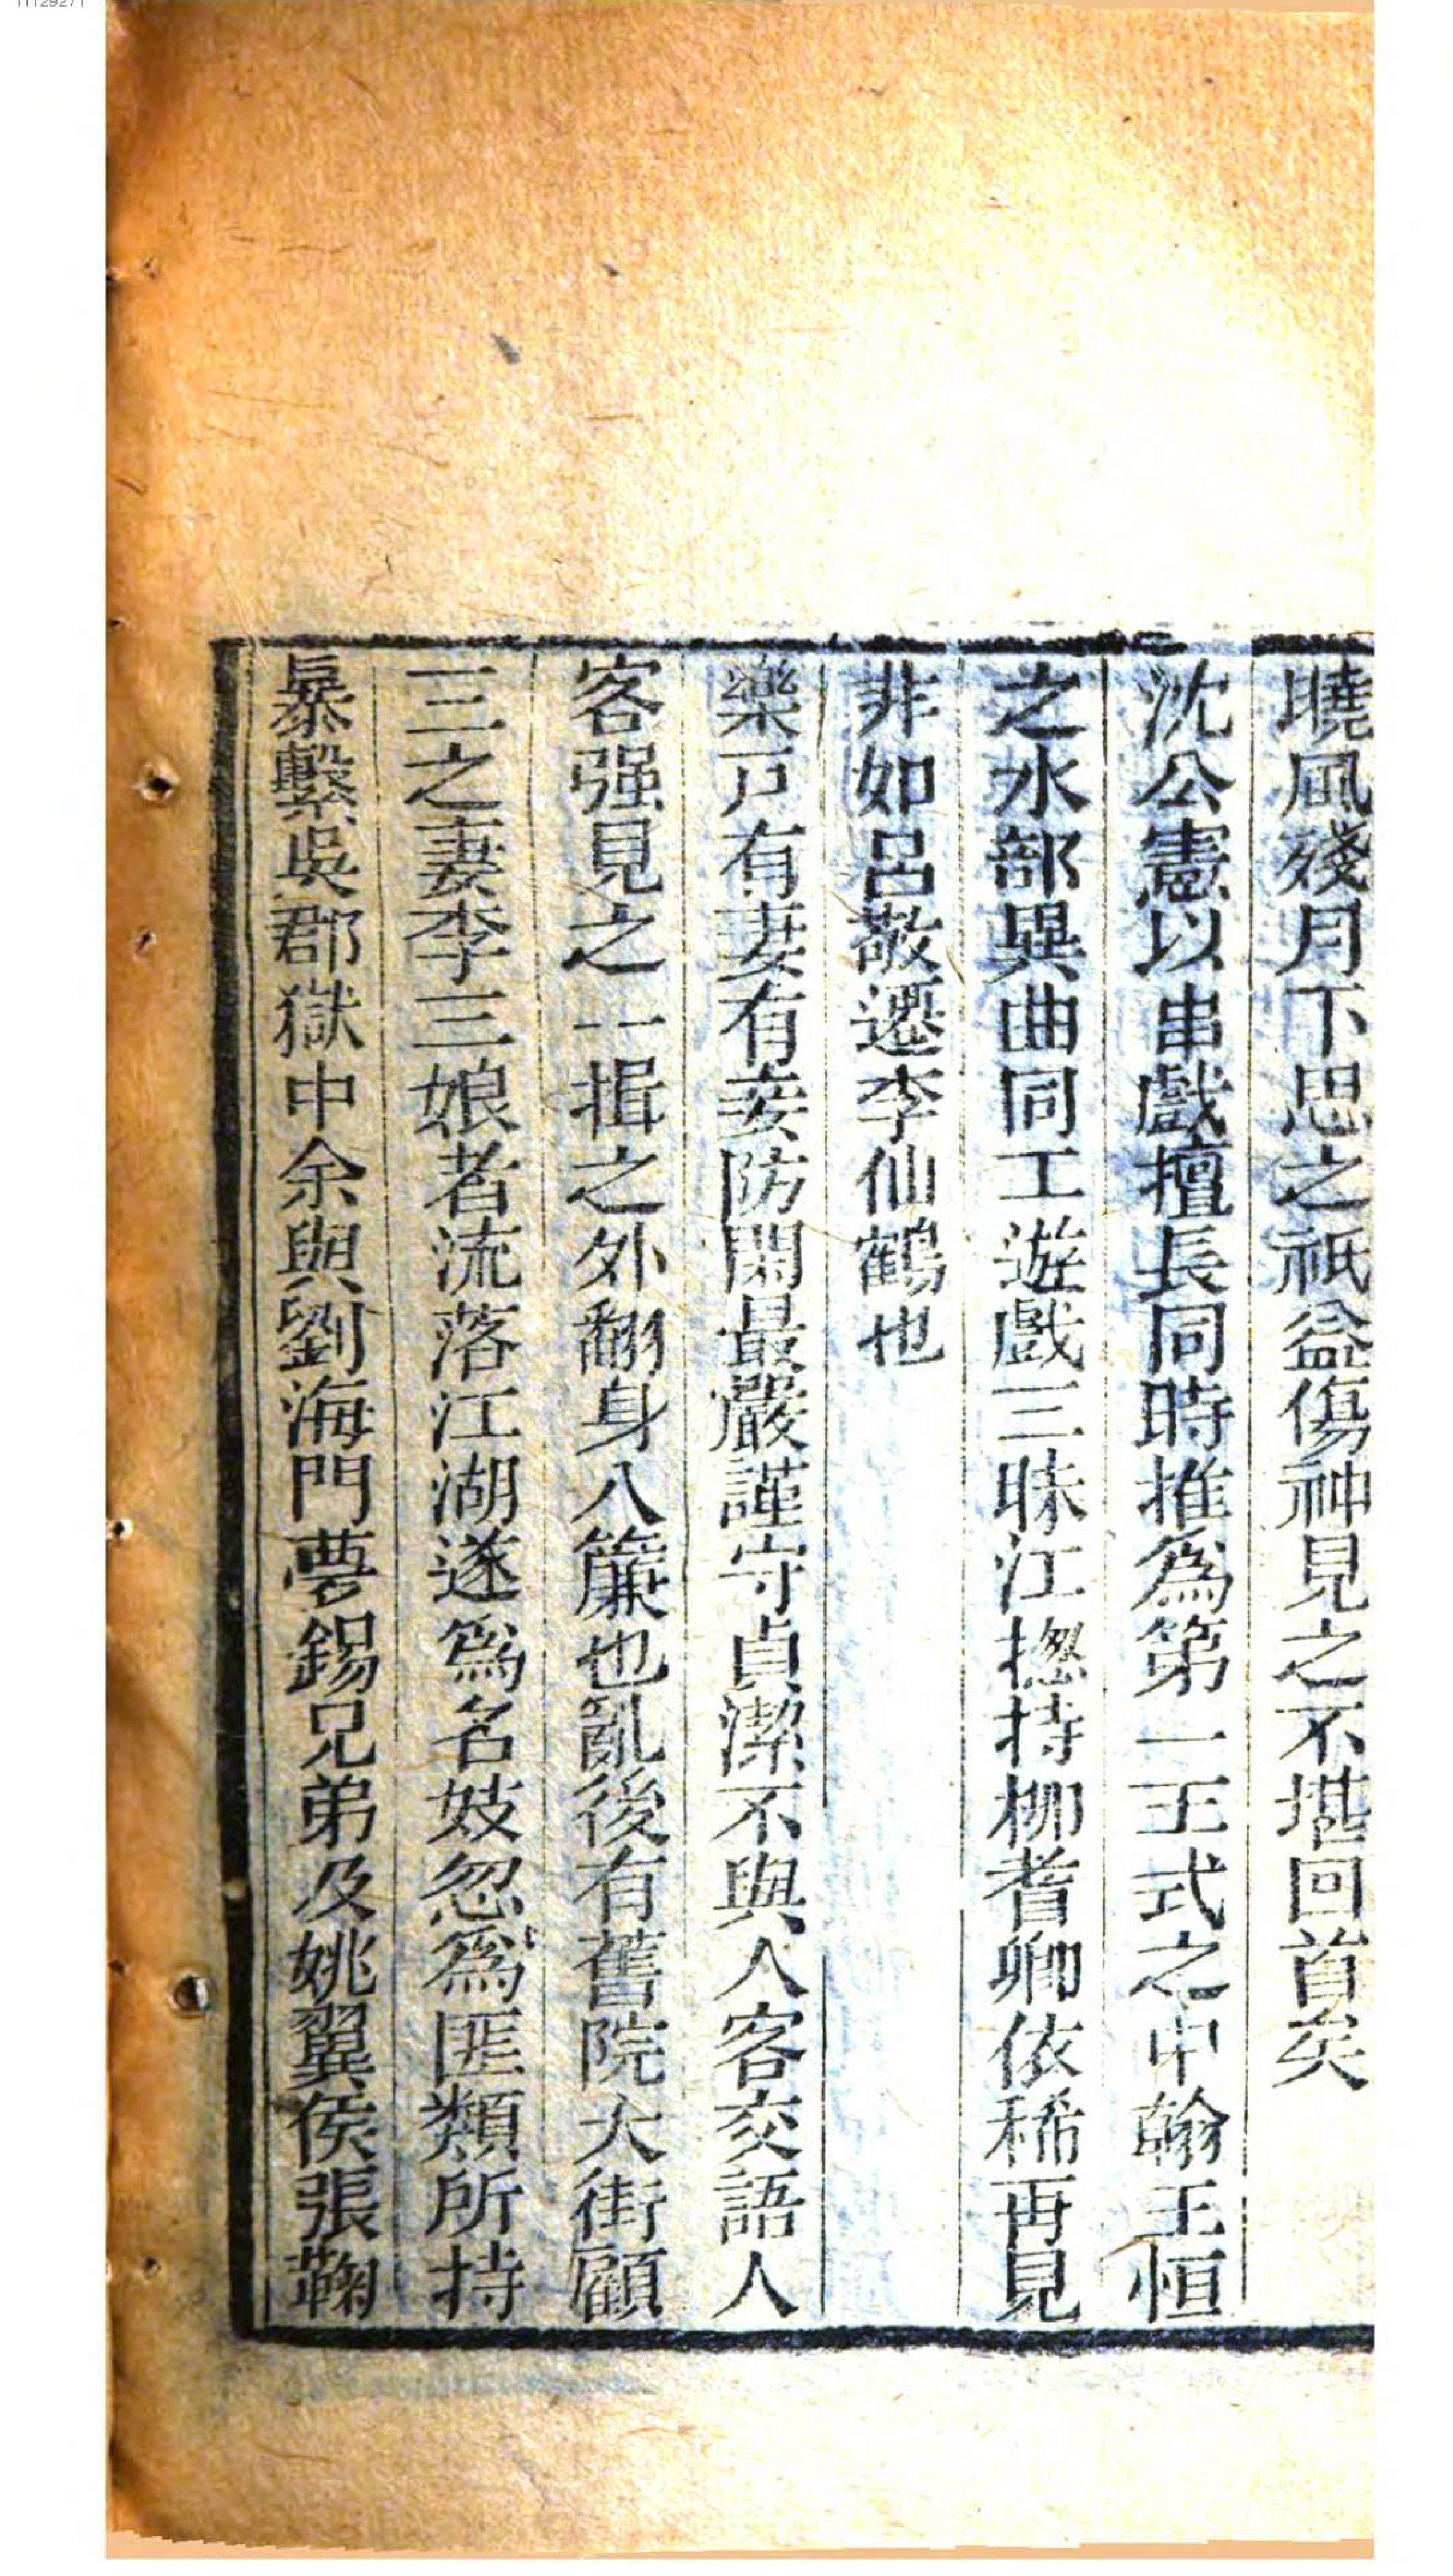 曉風殘月下思之祇益傷神見之不堪回首矣
沈公憲以串戲擅長同時推爲第一王式之中翰王恒
之水部異曲同工遊戲三昧江揔持柳耆卿依稀再見
非如呂敬遷李仙鶴也
樂戸有妻有妾防閑最嚴謹守貞潔不與人客交語人
客强見之一揖之外翻身入簾也亂後有舊院大街顧
三之妻李三娘者流落江湖遂爲名妓忽爲匪類所持
暴繫吳郡獄中余與劉海門夢錫兄弟及姚翼侯張鞠